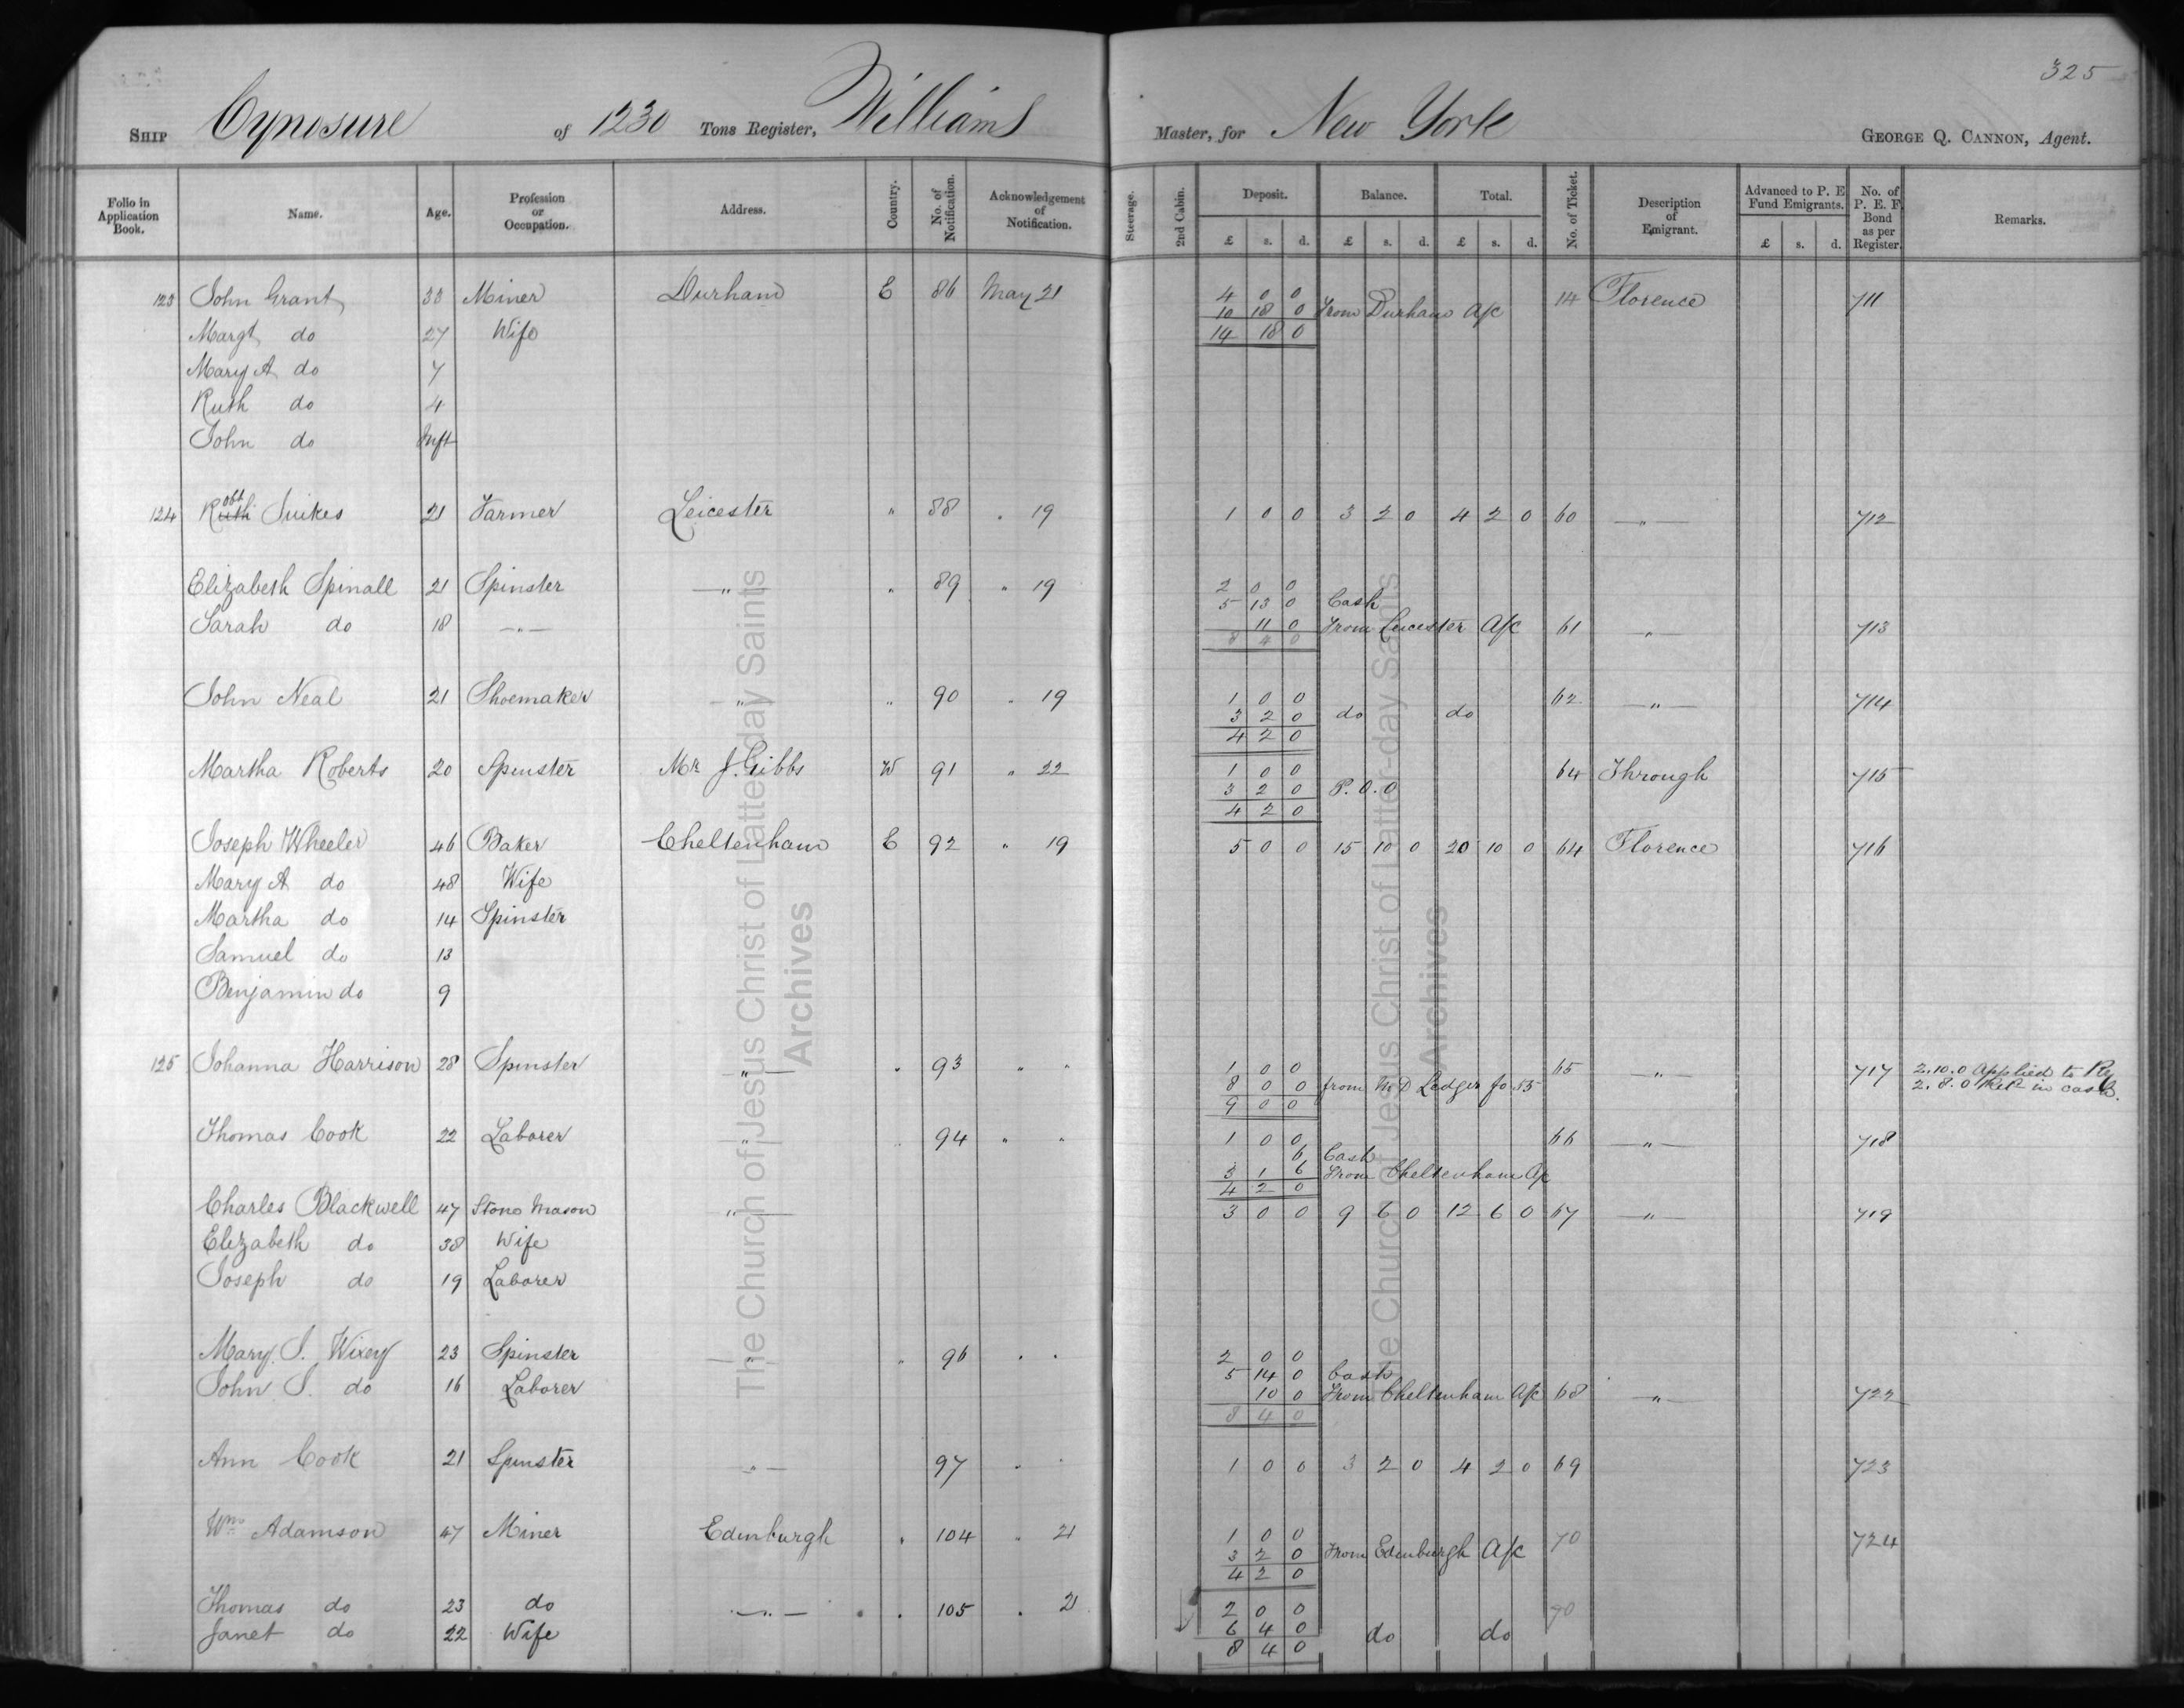 325
SHIP Cynosure of 1230 Tons Register, Williams Master, for New York GEORGE Q. CANNON, Agent.
Folio in Application Book. Name. Age. Profession or Occupation. Address. Country. No. of Notification. Acknowledgement of Notification. Steerage. 2nd Cabin. Deposit. Balance. Total. No. of Ticket. Description of Emigrant. Advanced to P. E Fund Emigrants. No. of P. E. F. Bond as per Register. Remarks.
£ s. d. £ s. d. £ s. d. £ s. d.
123 John Grant 33 Miner Durham E 86 May 21 4 0 0 14 Florence 711
10 18 0 From Durham A/c
Margt do 27 Wife 14 18 0
Mary A do 7
Ruth do 4
John do Inft
124 Robt Suikes 21 Farmer Leicester " 88 " 19 1 0 0 3 2 0 4 2 0 60 " 712
Elizabeth Spinall 21 Spinster " " 89 " 19 2 0 0
5 13 0 Cash
Sarah do 18 " 11 0 From Leicester A/c 61 " 713
8 4 0
John Neal 21 Shoemaker " " 90 " 19 1 0 0 62 " 714
3 2 0 do do
4 2 0
Martha Roberts 20 Spinster Mr J. Gibbs W 91 " 22 1 0 0 64 Through 715
3 2 0 P.O.O
4 2 0
Joseph Wheeler 46 Baker Cheltenham E 92 " 19 5 0 0 15 10 0 20 10 0 64 Florence 716
Mary A do 48 Wife
Martha do 14 Spinster
Samuel do 13
Benjamin do 9
125 Johanna Harrison 28 Spinster " " 93 " " 1 0 0 65 " 717 2.10.0 Applied to Ry
8 0 0 from M D Ledger fo 55 2.8.0 Ret in cash.
9 0 0
Thomas Cook 22 Laborer " " 94 " " 1 0 0 66 " 718
6 Cash
3 1 6 From Cheltenham A/c
4 2 0
Charles Blackwell 47 Stone Mason " 3 0 0 9 6 0 12 6 0 67 " 719
Elizabeth do 38 Wife
Joseph do 19 Laborer
Mary S. Wixey 23 Spinster " " 96 " " 2 0 0
5 14 0 Cash
John S. do 16 Laborer 10 0 From Cheltenham A/c 68 " 722
8 4 0
Ann Cook 21 Spinster " 97 " " 1 0 0 3 2 0 4 2 0 69 723
Wm Adamson 47 Miner Edinburgh " 104 " 21 1 0 0 70 724
3 2 0 From Edinburgh A/c
4 2 0
Thomas do 23 do " " 105 " 21 2 0 0 70
Janet do 22 Wife 6 4 0 do do
8 4 0
The Church of Jesus Christ of Latter-day Saints
Archives
The Church of Jesus Christ of Latter-day Saints
Archives